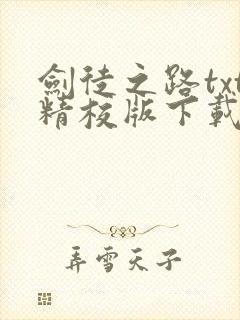 劍徒之路txt
精校版下載
弄雪天子